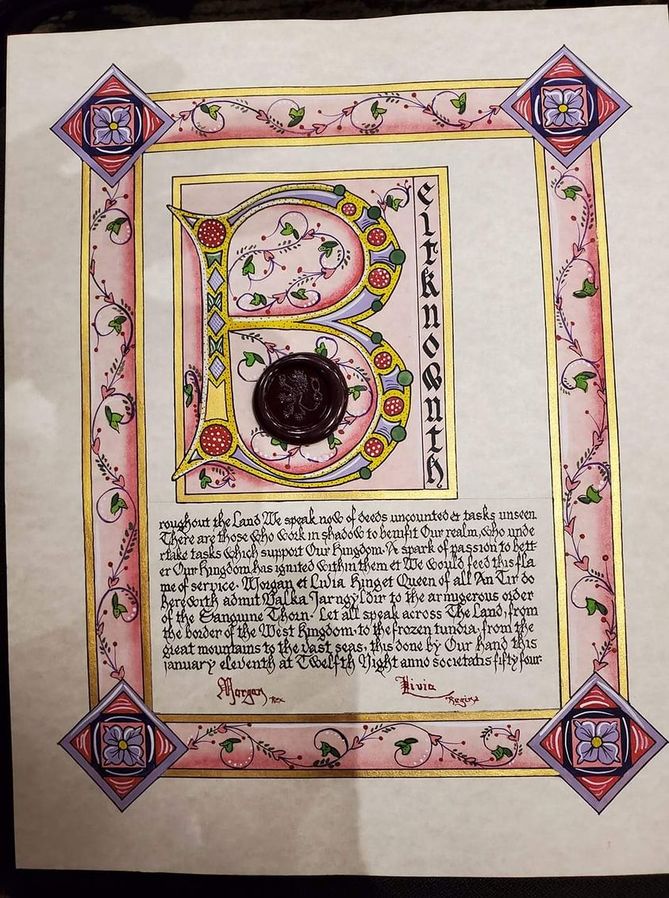 Beitknownth
roughout the Land We speak now of deeds uncounted & tasks unseen
There are those who work in shadow to benifit Our realm, who unde
rtake tasks which support Our Kingdom. A spark of passion to bett
er Our Kingdom has ignited within them & We would feed this fla
me of service. Morgan et Livia King et Queen of all An Tir do
herewith admit Valka Jarngyldir to the armigerous order
of the Sanguine Thorn. Let all speak across The Land, from
the border of the West Kingdom to the frozen tundra, from the
great mountains to the vast seas, this done by Our hand this
january eleventh at Twelfth Night anno societatis fifty four
Morgan Rex
Livia Regina